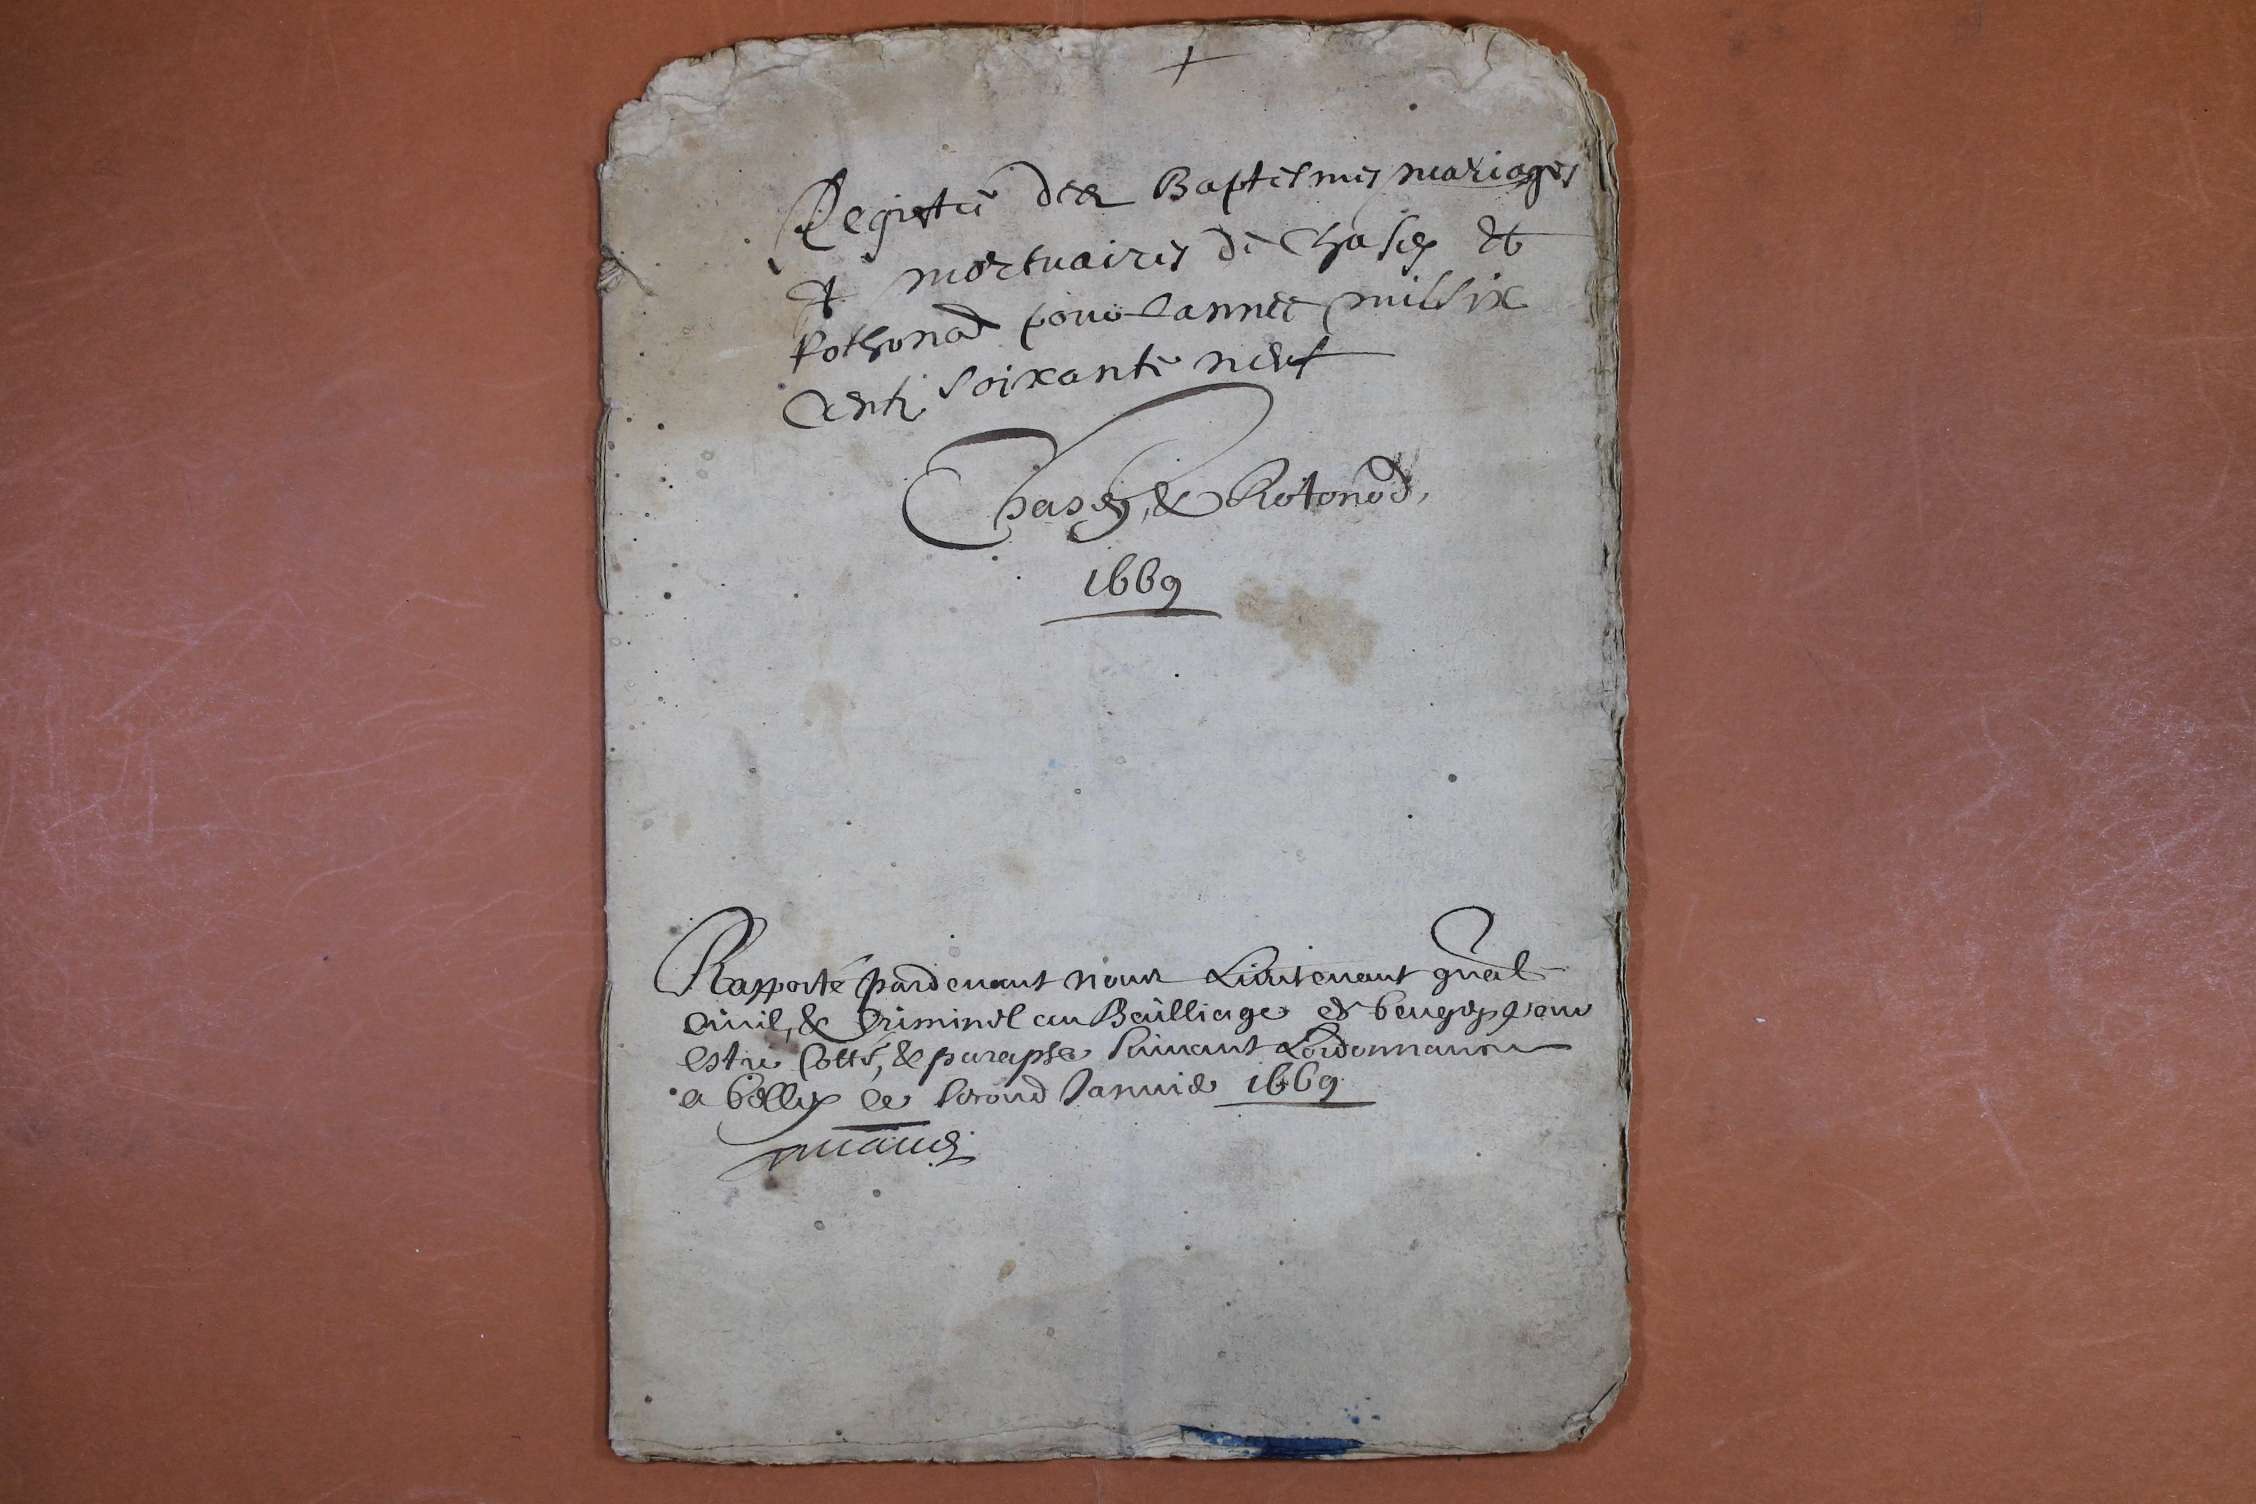 Registre des Baptesmes mariages
et mortuaires de Chasey et
Rothonod pour lannee mil six
Cents soixante neuf
Chasey, & Rotonod,
1669
Rapporté pardevant nous Lieutenant gnāl
Civil, & Criminel au Bailliage de beugey pour
estre Cotté, & paraphé suivant Lordonnance
a belley ce second Janvier 1669